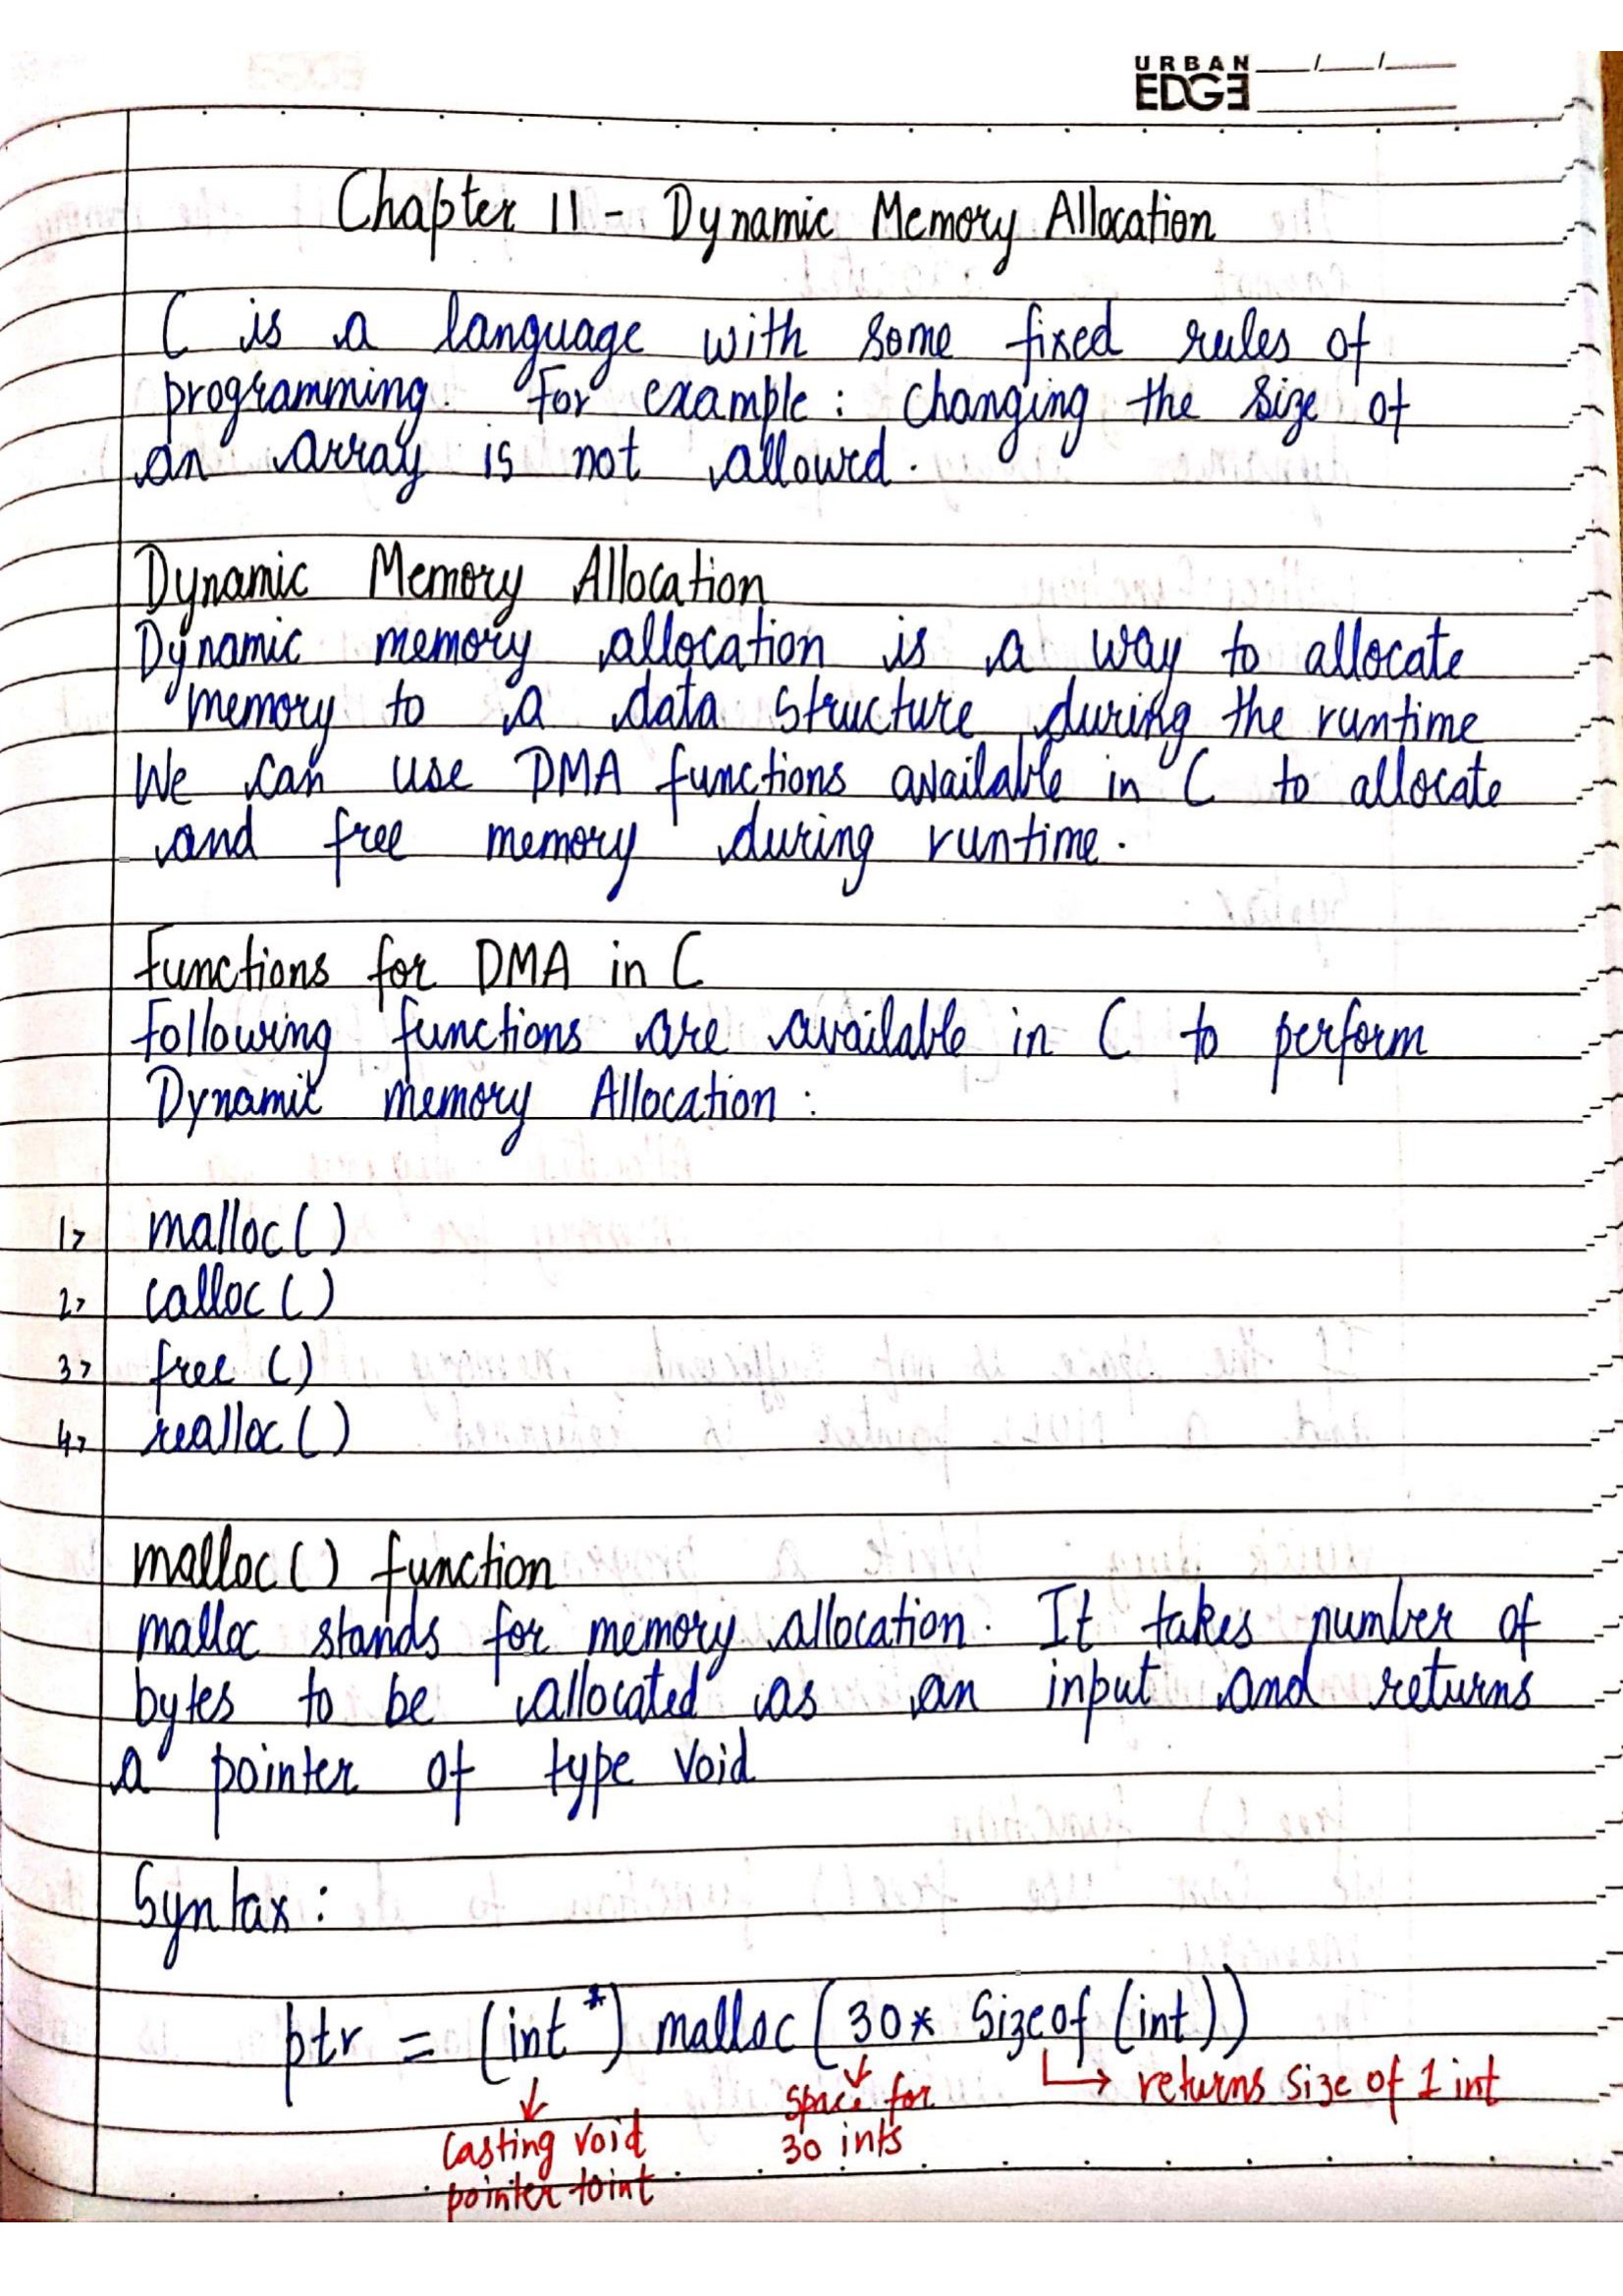 URBAN
EDGE
Chapter 11 - Dynamic Memory Allocation
C is a language with some fixed rules of
programming. For example : Changing the size of
an array is not allowed.
Dynamic Memory Allocation
Dynamic memory allocation is a way to allocate
memory to a data structure during the runtime
We can use DMA functions available in C to allocate
and free memory during runtime.
Functions for DMA in C
Following functions are available in C to perform
Dynamic memory Allocation :
1> malloc()
2> calloc()
3> free ()
4> realloc()
malloc() function
malloc stands for memory allocation. It takes number of
bytes to be allocated as an input and returns
a pointer of type void
Syntax :
ptr = (int *) malloc (30* Sizeof (int))
returns size of 1 int
Casting void
pointer to int
Space for
30 ints